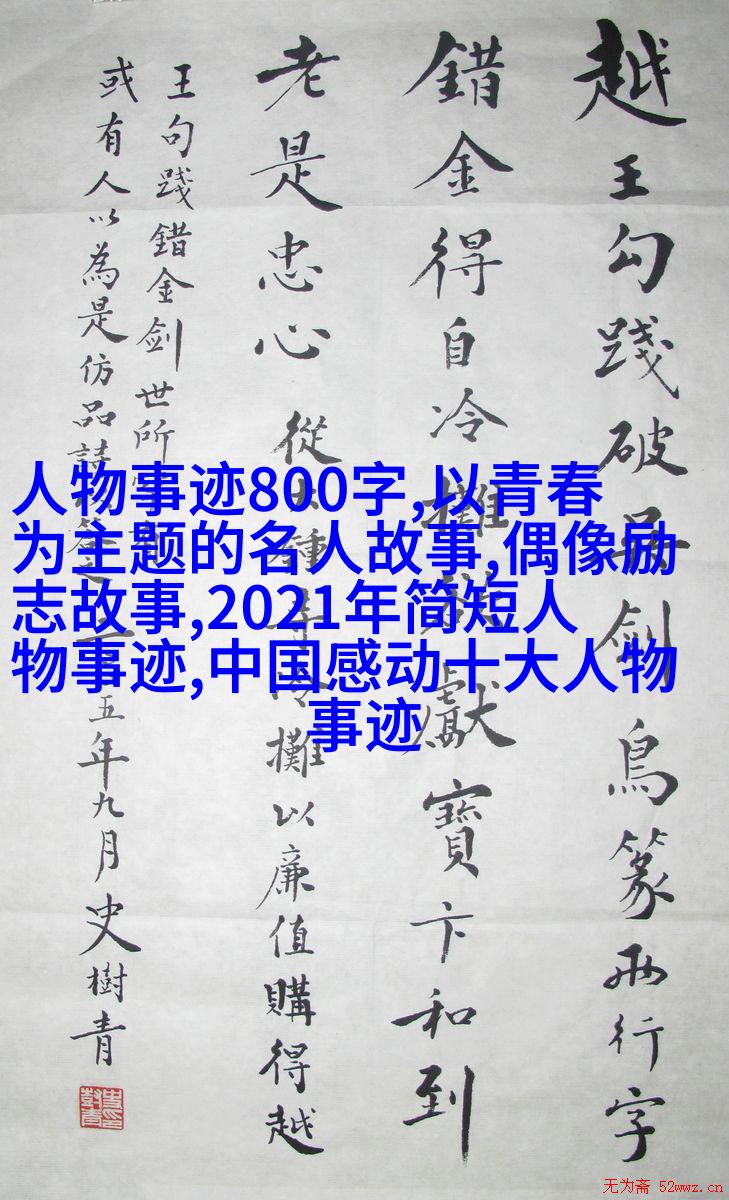 越王勾踐破吳劍鳥篆兩行字
錯金得自冷攤獻寶卞和到
老是忠心 從大鍾寺冷攤以廉值購得越
王句踐錯金劍世所
或有人以為是仿品詩之五年九月史樹青
人物事迹800字,以青春
为主题的名人故事,偶像励
志故事,2021年简短人
物事迹,中国感动十大人物
事迹
无为斋 52wwz.cn